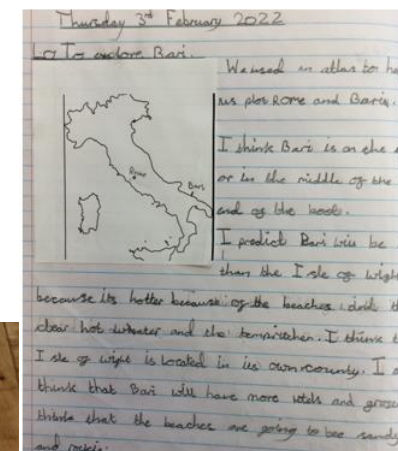 Thursday 3rd February 2022
LO To explore Bari.
We used an atlas to
us plot Rome and Baris.
Rome
Bari
I think Bari is on the
or in the middle of the
end of the boot.
I predict Bari will be
than the Isle of Wight
because its hotter because of the beaches
clear hot and the I think
Isle of wight is located in its own county. I
think that Bari will have more and
think that the beaches are going to bee sandy
and